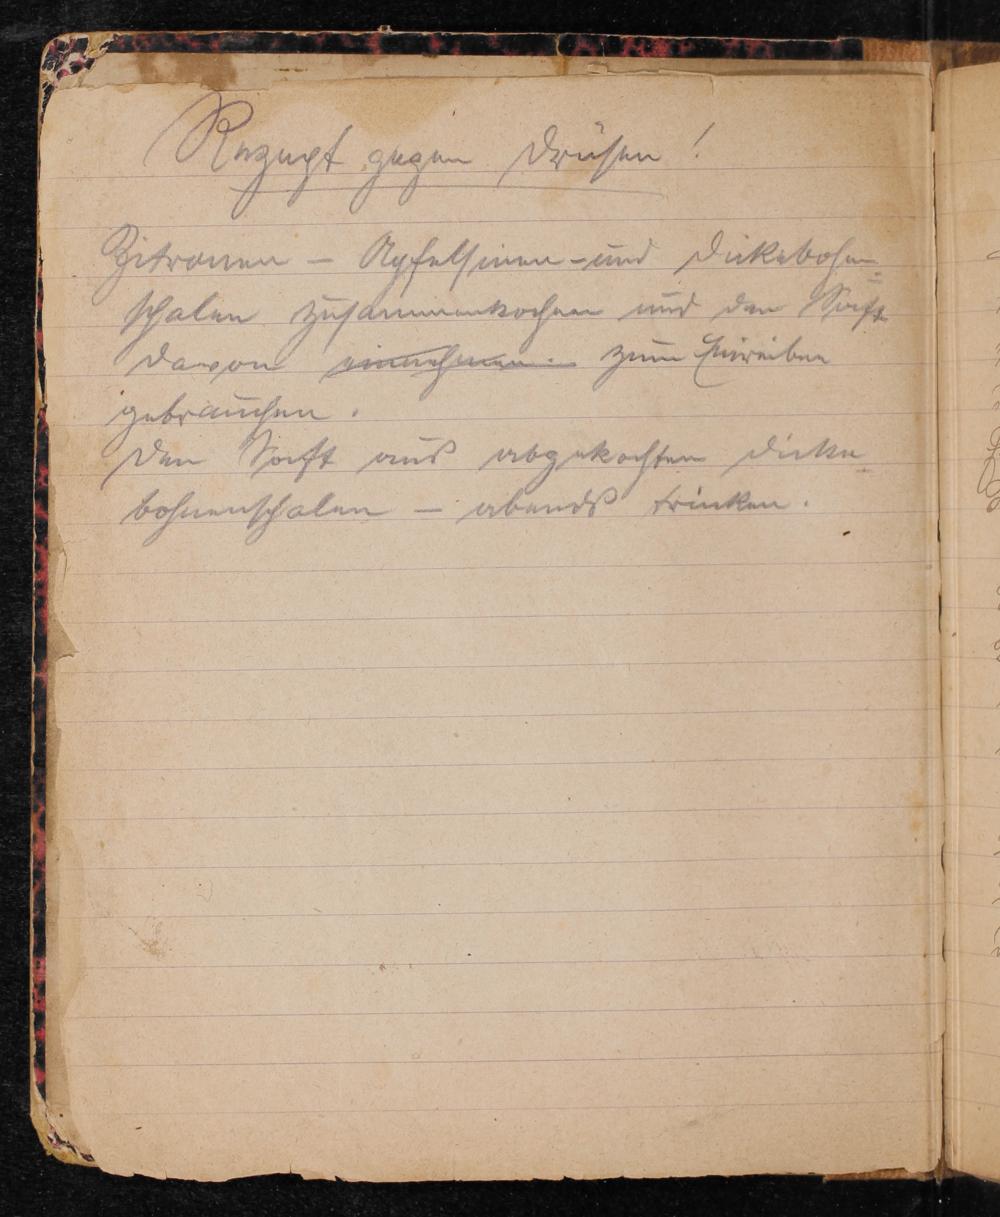 Rezept gegen Drüsen!
Zitronen – Apfelsinen - und Dickebohnen=
schalen zusammenkochen und den Saft
davon einnehmen. zum Einreiben
gebrauchen.
Den Saft aus abgekochten Dicke
bohnenschalen – abends trinken.